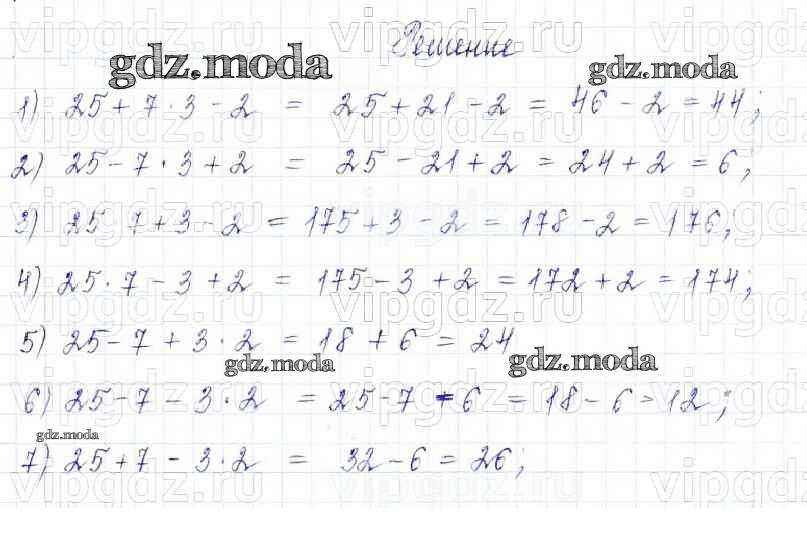 Решение
gdz.moda gdz.moda
1) 25 + 7 · 3 - 2 = 25 + 21 - 2 = 46 - 2 = 44;
2) 25 - 7 · 3 + 2 = 25 - 21 + 2 = 24 + 2 = 6;
3) 25 · 7 + 3 - 2 = 175 + 3 - 2 = 178 - 2 = 176;
4) 25 · 7 - 3 + 2 = 175 - 3 + 2 = 172 + 2 = 174;
5) 25 - 7 + 3 · 2 = 18 + 6 = 24
gdz.moda gdz.moda
6) 25 - 7 - 3 · 2 = 25 - 7 - 6 = 18 - 6 = 12;
gdz.moda
7) 25 + 7 - 3 · 2 = 32 - 6 = 26;
vipgdz.ru